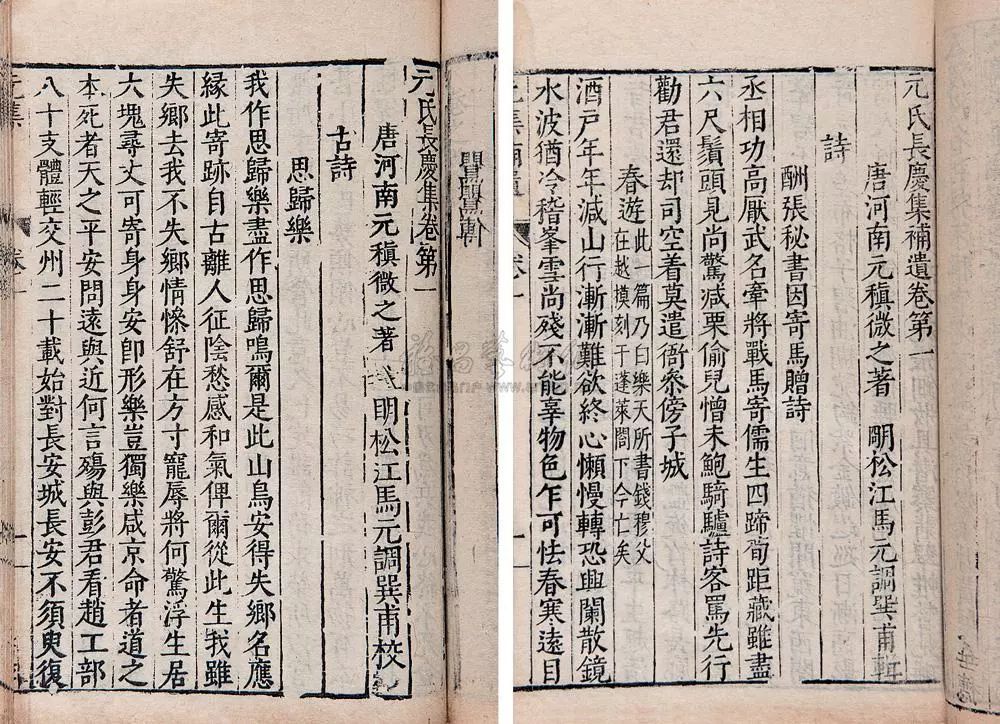 元氏長慶集補遺卷第一
唐河南元稹微之著 明松江馬元調巽甫輯
詩
酬張秘書因寄馬贈詩
丞相功高厭武名牽將戰馬寄儒生四蹄荀距藏雖盡
六尺鬚頭見尚驚減粟偷兒憎未鮑騎驢詩客罵先行
勸君還却司空着莫遣衙參傍子城
春遊 此一篇乃白樂天所書錢穆父
在越模刻于蓬萊閣下今亡矣
酒戶年年減山行漸漸難欲終心懶慢轉恐興闌散鏡
水波猶冷稽峯雪尚殘不能辜物色乍可怯春寒遠目
元氏長慶集卷第一
唐河南元稹微之著 明松江馬元調巽甫校
古詩
思歸樂
我作思歸樂盡作思歸鳴爾是此山鳥安得失鄉名應
緣此寄跡自古離人征陰愁感和氣俾爾從此生我雖
失鄉去我不失鄉情慘舒在方寸寵辱將何驚浮生居
大塊尋丈可寄身身安即形樂豈獨樂咸京命者道之
本死者天之平安問遠與近何言殤與彭君看趙工部
八十支體輕交州二十載始對長安城長安不須臾復
元集 卷一